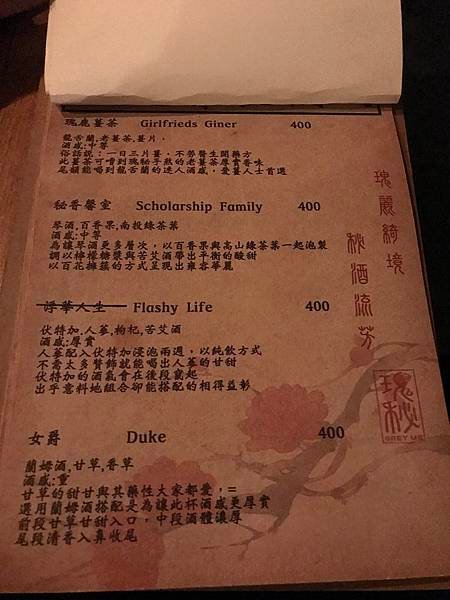 瑰鹿薑茶 Girlfrieds Giner 400
龍舌蘭,老薑茶,薑片,
酒感:中等
俗話說:一日三片薑,不勞醫生開藥方
此薑茶可嚐到瑰秘手熬的老薑茶厚實香味
尾韻能喝到龍舌蘭的迷人酒感,愛薑人士首選
秘香馨室 Scholarship Family 400
琴酒,百香果,南投綠茶葉
酒感:中等
為讓琴酒更多層次,以百香果與高山綠茶葉一起泡製
調以檸檬糖漿與苦艾酒帶出平衡的酸甜
以百花摧蕊的方式呈現出雍容華麗
浮華人生 Flashy Life 400
伏特加,人蔘,枸杞,苦艾酒
酒感:厚實
人蔘配入伏特加浸泡兩週,以純飲方式
不需太多贅飾就能喝出人蔘的甘甜
伏特加的酒氣會在後段竄起
出乎意料地組合卻能搭配的相得益彰
女爵 Duke 400
蘭姆酒,甘草,香草
酒感:重
甘草的甜甘與其藥性大家都愛,=
選用蘭姆酒搭配是為讓此杯酒感更厚實
前段甘草甘甜入口,中段酒體濃厚
尾段清香入鼻收尾
瑰麗綺境
秘酒流芳
瑰秘
GREY ME